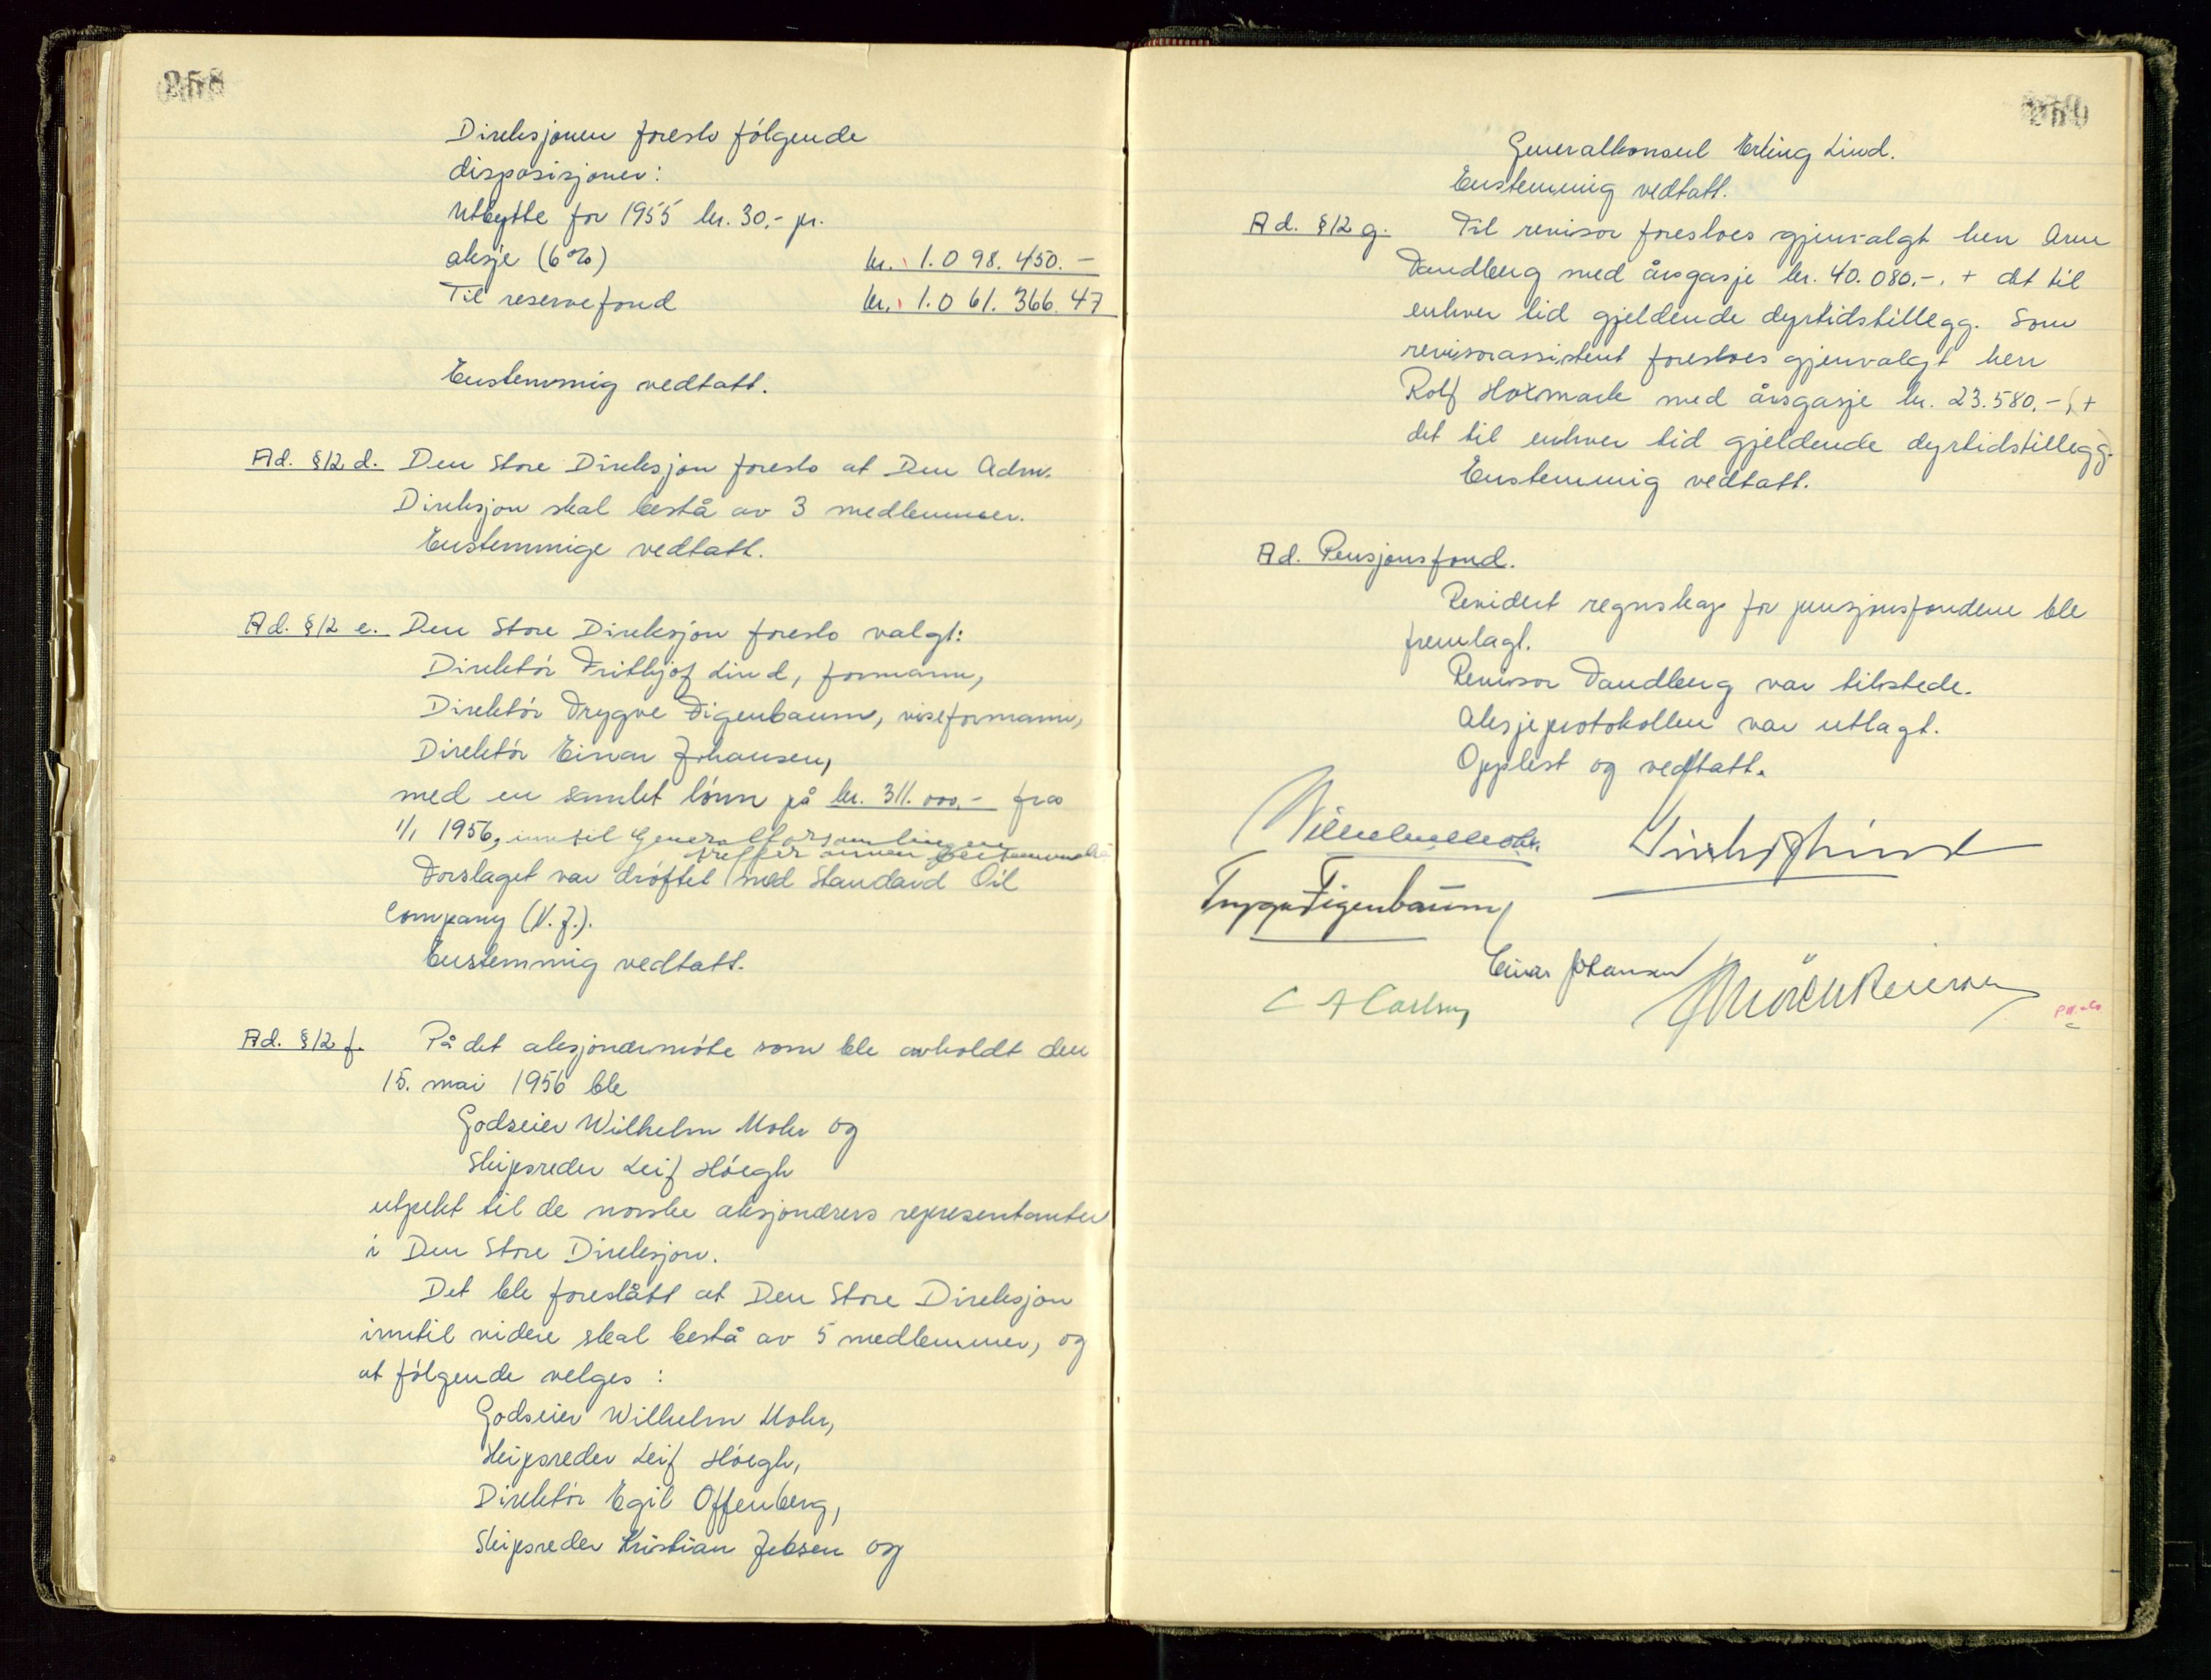 258
Direksjonen foreslo følgende
disposisjoner:
Utbytte for 1955 kr. 30.- pr.
aksje (6%) kr. 1.098.450.-
Til reservefond kr. 1.061.366.47
Enstemmig vedtatt.
Ad. §12 d. Den Store Direksjon foreslo at Den Adm.
Direksjon skal bestå av 3 medlemmer.
Enstemmige vedtatt.
Ad. §12 e. Den Store Direksjon foreslo valgt:
Direktør Frithjof Lind, formann,
Direktør Trygve Figenbaum, viseformann,
Direktør Einar Johansen,
med en samlet lønn på kr. 311.000,- fra
1/1 1956, inntil Generalforsamlingen
treffer annen bestemmelse
Forslaget var drøftet med Standard Oil
Company (N.J.).
Enstemmig vedtatt.
Ad. §12 f. På det aksjonærmøte som ble avholdt den
15. mai 1956 ble
Godseier Wilhelm Mohr og
Skipsreder Leif Höegh
utpekt til de norske aksjonærers representanter
i Den Store Direksjon.
Det ble foreslått at Den Store Direksjon
inntil videre skal bestå av 5 medlemmer, og
at følgende velges :
Godseier Wilhelm Mohr,
Skipsreder Leif Höegh,
Direktør Egil Offenberg,
Skipsreder Kristian Jebsen og
Generalkonsul Erling Lind.
Enstemmig vedtatt.
Ad. §12 g. Til revisor foresloes gjenvalgt herr Arne
Tandberg med årsgasje kr. 40.080,-, + det til
enhver tid gjeldende dyrtidstillegg. Som
revisorassistent foresloes gjenvalgt herr
Rolf Hoxmark med årsgasje kr. 23.580,-, +
det til enhver tid gjeldende dyrtidstillegg.
Enstemmig vedtatt.
Ad. Pensjonsfond.
Revidert regnskap for pensjonsfondene ble
fremlagt.
Revisor Tandberg var tilstede.
Aksjeprotokollen var utlagt.
Opplest og vedtatt.
Wilhelm Mohr
Frithjof Lind
Trygve Figenbaum
Einar Johansen
C A Carlsen